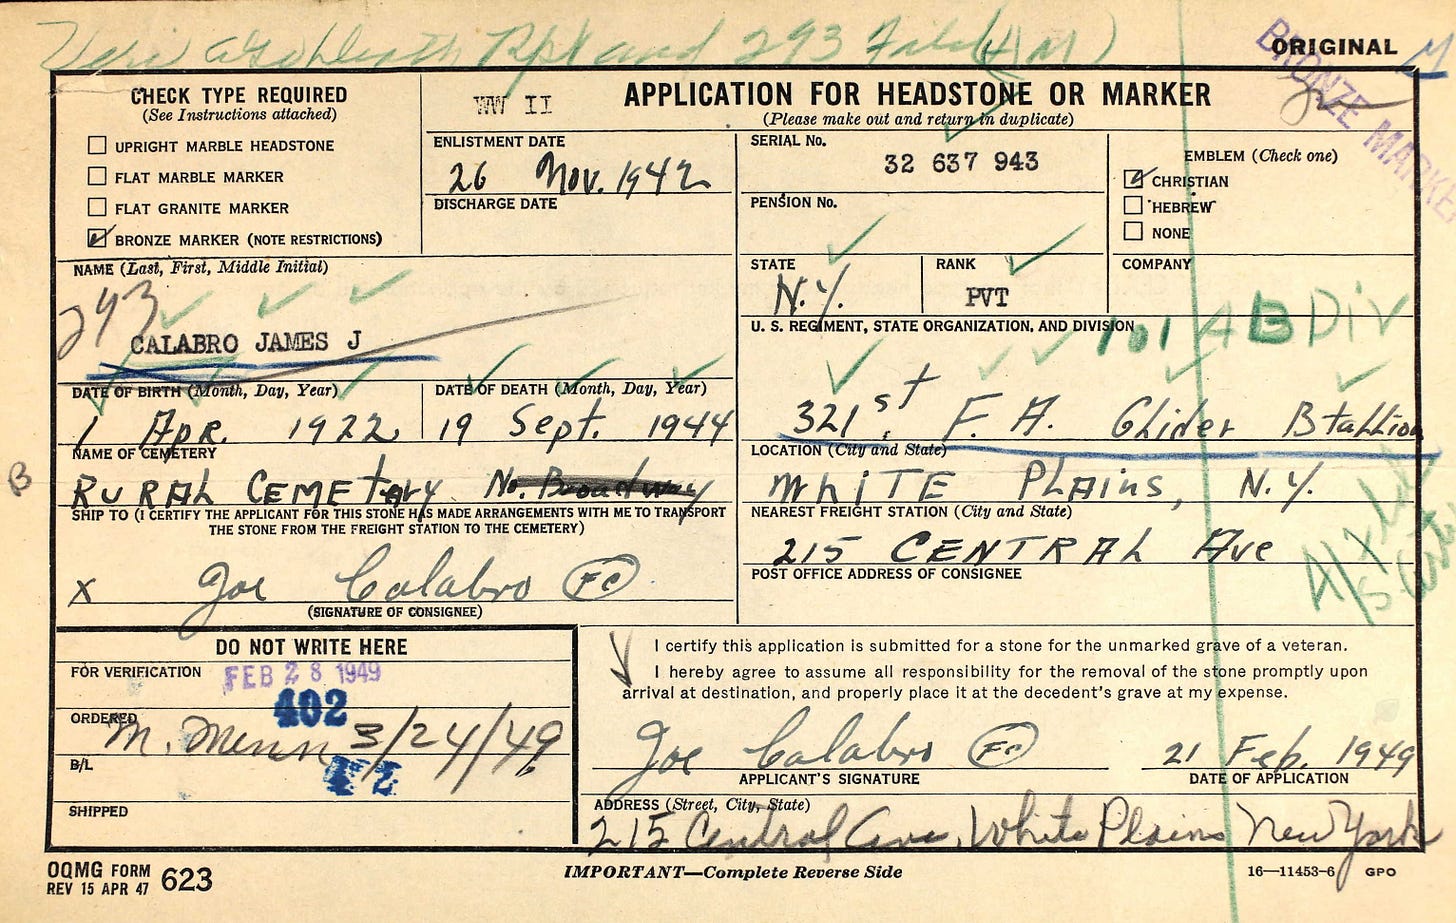 and 293 File
ORIGINAL M
BRONZE MARKER
CHECK TYPE REQUIRED
(See Instructions attached)
UPRIGHT MARBLE HEADSTONE
FLAT MARBLE MARKER
FLAT GRANITE MARKER
BRONZE MARKER (NOTE RESTRICTIONS)
WW II
APPLICATION FOR HEADSTONE OR MARKER
(Please make out and return in duplicate)
ENLISTMENT DATE
26 Nov. 1942
DISCHARGE DATE
SERIAL No.
32 637 943
PENSION No.
EMBLEM (Check one)
CHRISTIAN
HEBREW
NONE
NAME (Last, First, Middle Initial)
293
CALABRO JAMES J
STATE
N.Y.
RANK
PVT
COMPANY
U. S. REGIMENT, STATE ORGANIZATION, AND DIVISION
101 AB Div
321st F. A. Glider Btallion
DATE OF BIRTH (Month, Day, Year)
1 Apr. 1922
DATE OF DEATH (Month, Day, Year)
19 Sept. 1944
NAME OF CEMETERY
B
RURAL CEMEtary No. Broadway
LOCATION (City and State)
WhiTE PLAins, N.Y.
SHIP TO (I CERTIFY THE APPLICANT FOR THIS STONE HAS MADE ARRANGEMENTS WITH ME TO TRANSPORT
THE STONE FROM THE FREIGHT STATION TO THE CEMETERY)
NEAREST FREIGHT STATION (City and State)
215 CENTRAL Ave
POST OFFICE ADDRESS OF CONSIGNEE
x Joe Calabro FC
(SIGNATURE OF CONSIGNEE)
DO NOT WRITE HERE
FOR VERIFICATION
FEB 28 1949
402
ORDERED
M. 3/24/49
B/L
SHIPPED
I certify this application is submitted for a stone for the unmarked grave of a veteran.
I hereby agree to assume all responsibility for the removal of the stone promptly upon
arrival at destination, and properly place it at the decedent's grave at my expense.
Joe Calabro FC
APPLICANT'S SIGNATURE
21 Feb. 1949
DATE OF APPLICATION
ADDRESS (Street, City, State)
215 Central Ave, White Plains New York
OQMG FORM
REV 15 APR 47 623
IMPORTANT—Complete Reverse Side
16—11453-6 GPO